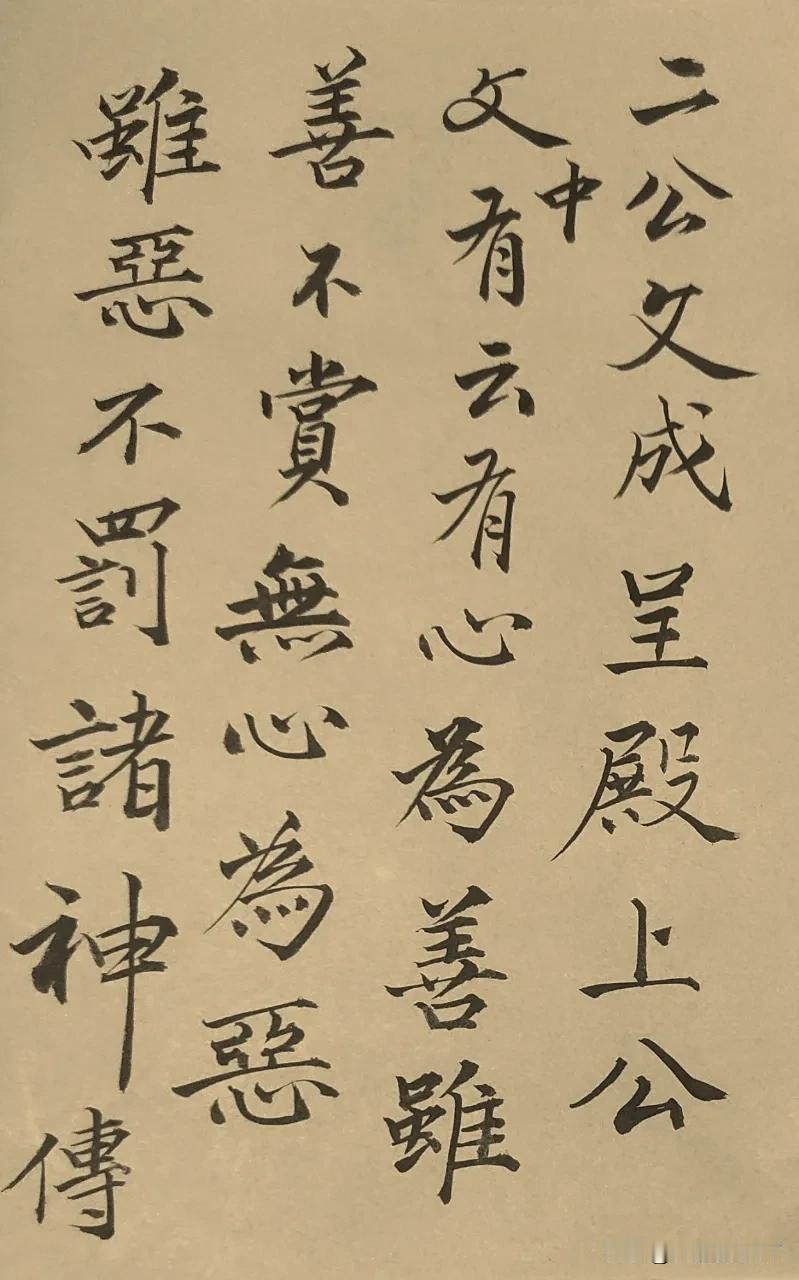 二公文成呈殿上公
文中有云有心為善雖
善不賞無心為惡
雖惡不罰諸神傳